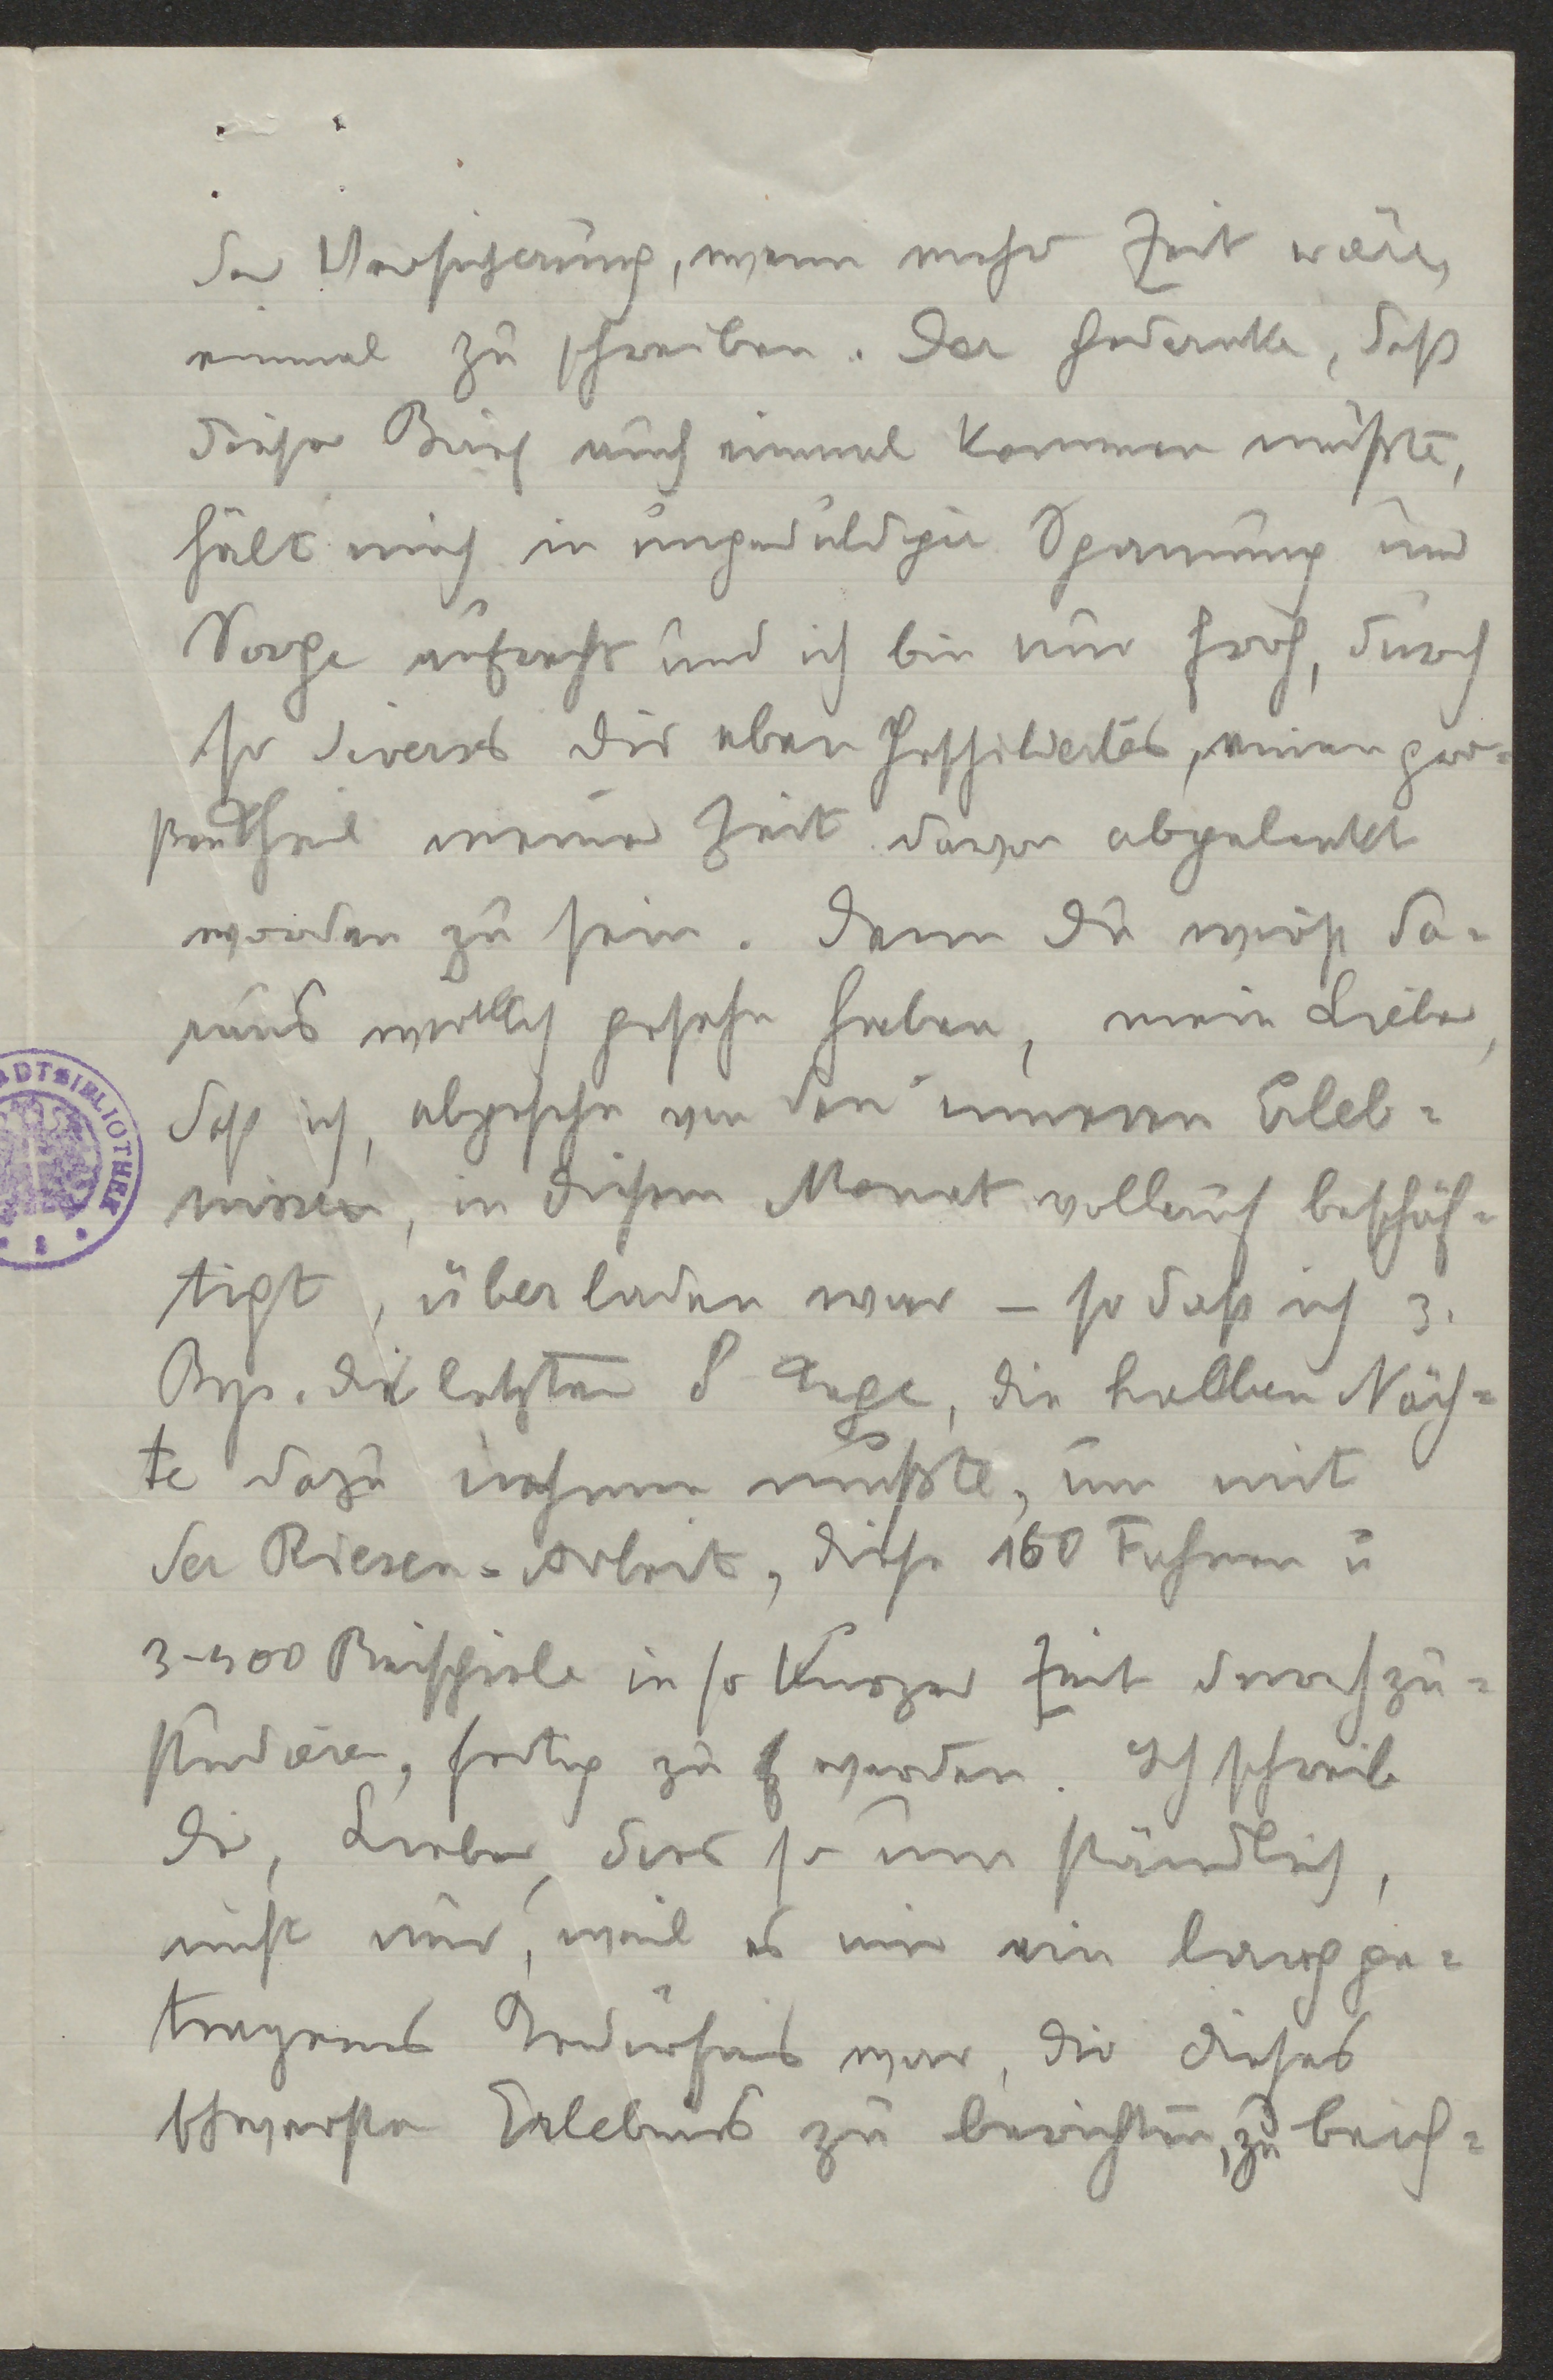 der Versicherung, wenn mehr Zeit wäre,
einmal zu schreiben. Der Gedanke, daß
dieser Brief auch einmal kommen müßte,
hält mich in ungeduldiger Spannung und
Sorge aufrecht und ich bin nur froh, durch
so diverses Dir eben Geschildertes, einen gro=
ßen Theil meiner Zeit davon abgelenkt
worden zu sein. Denn Du wirst da=
raus wirklich gesehn haben, mein Lieber,
daß ich, abgesehn von den inneren Erleb=
nissen, in diesem Monat vollauf beschäf=
tigt, überladen war – so daß ich z.
Bsp. die letzten 8 Tage, die halben Näch=
te dazu nehmen mußte, um mit
der Riesen=Arbeit, diese 160 Fugen u
3-400 Beispiele in so kurzer Zeit durchzu=
studieren, fertig zu werden. Ich schreibe
Dir, Lieber, dies so umständlich,
nicht nur, weil es mir ein lang ge=
tragenes Bedürfnis war, Dir dieses
schwerste Erlebnis zu berichten, zu beich=
STADTBIBLIOTHEK